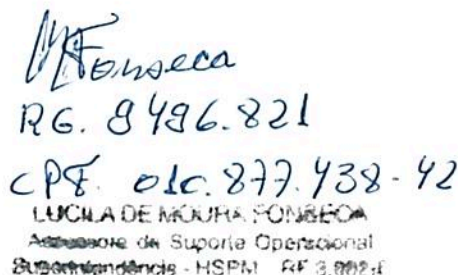 MFonseca
RG. 9496.821
CPF. 010.877.438-42
LUCILA DE MOURA FONSECA
Assessora de Suporte Operacional
Superintendência - HSPM RF 3.992-